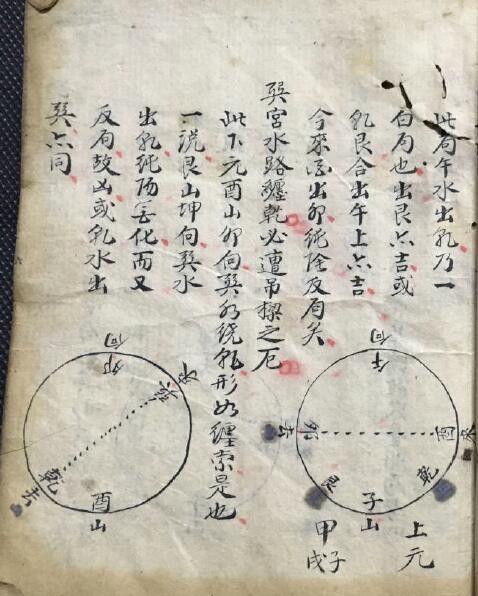 此局午水出乾乃一
白局也出艮亦吉或
乾艮合出午上亦吉
今來酉出卯純陰反局矣
巽宮水路纏乾必遭吊之厄
此下元酉山卯向巽水繞乾形如纏索是也
一說艮山坤向巽水
出乾純陽無化而又
反局故凶或乾水出
巽亦同
午向
卯去
酉來
艮
乾
子山
上元
甲子戌
卯向
巽來
乾去
酉山